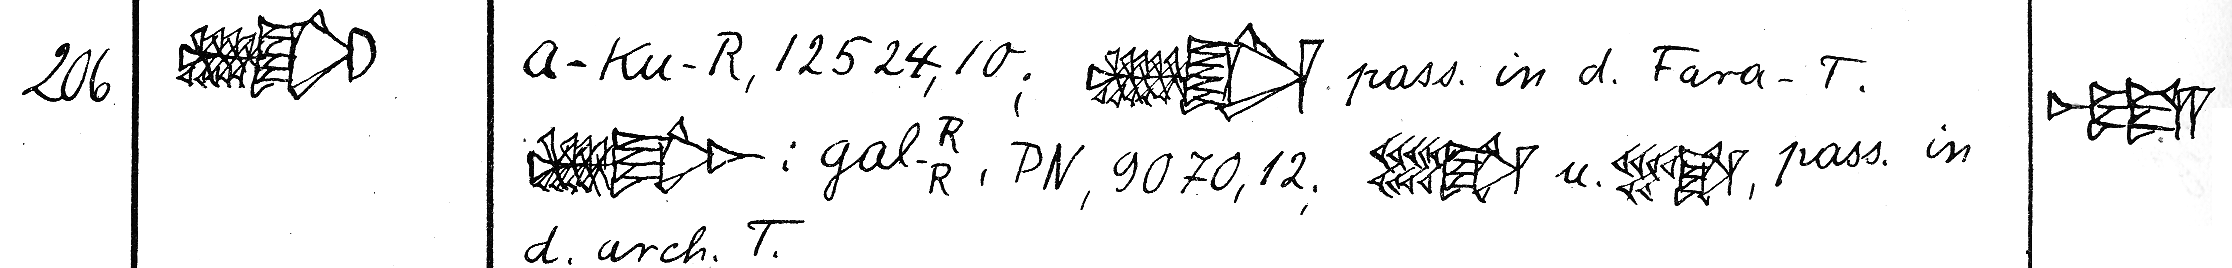 206 a-Ku-R, 12524,10; pass. in d. Fara-T.
: gal-R R, PN, 9070,12; u. , pass. in
d. arch. T.